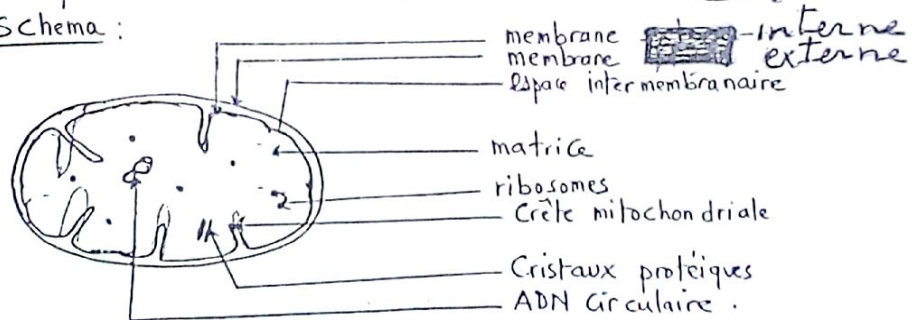 Schema :
membrane - interne
membrare externe
Espace intermembranaire
matrice
ribosomes
Crête mitochondriale
Cristaux protéiques
ADN Circulaire .